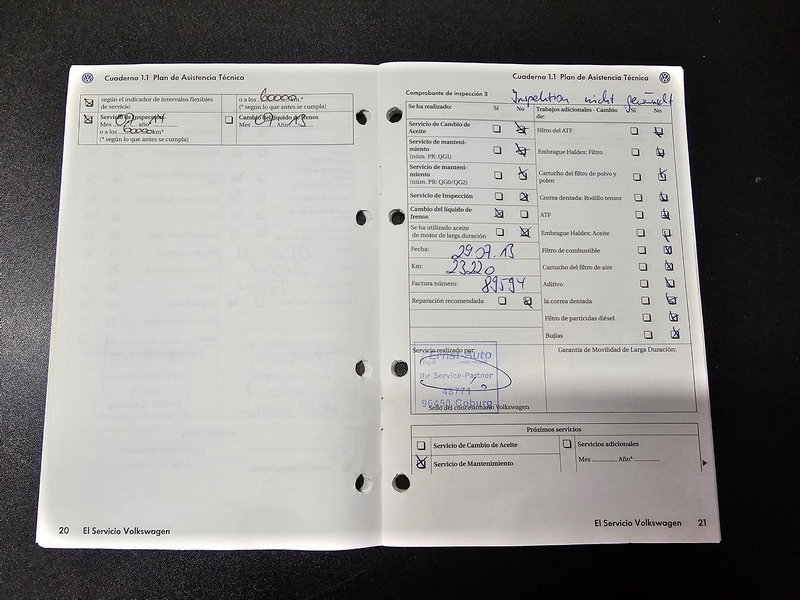 Cuaderno 1.1 Plan de Asistencia Técnica
según el indicador de intervalos flexibles de servicio
o a los 60000 km*
(* según lo que antes se cumpla)
Servicio de Inspección
Mes 07 año 14
o a los 60000 km*
(* según lo que antes se cumpla)
Cambio del líquido de frenos
Mes 07 Año 15
20 El Servicio Volkswagen
Cuaderno 1.1 Plan de Asistencia Técnica
Comprobante de inspección 3
Inspektion nicht gewünscht
Se ha realizado: Sí No
Servicio de Cambio de
Aceite
Servicio de manteni-
miento
(núm. PR: QG1)
Servicio de manteni-
miento
(núm. PR: QG0/QG2)
Servicio de Inspección
Cambio del líquido de
frenos
Se ha utilizado aceite
de motor de larga duración
Fecha: 29.07.13
Km: 23220
Factura número: 89594
Reparación recomendada
Trabajos adicionales - Cambio Sí No
de:
Filtro del ATF
Embrague Haldex: Filtro
Cartucho del filtro de polvo y
polen
Correa dentada: Rodillo tensor
ATF
Embrague Haldex: Aceite
Filtro de combustible
Cartucho del filtro de aire
Aditivo
la correa dentada
Filtro de partículas diésel
Bujías
Servicio realizado por:
Ernst-Auto
Ihr Service-Partner
48771
96450 Coburg
Sello del concesionario Volkswagen
Garantía de Movilidad de Larga Duración:
Próximos servicios
Servicio de Cambio de Aceite
Servicio de Mantenimiento
Servicios adicionales
Mes Año*
El Servicio Volkswagen 21